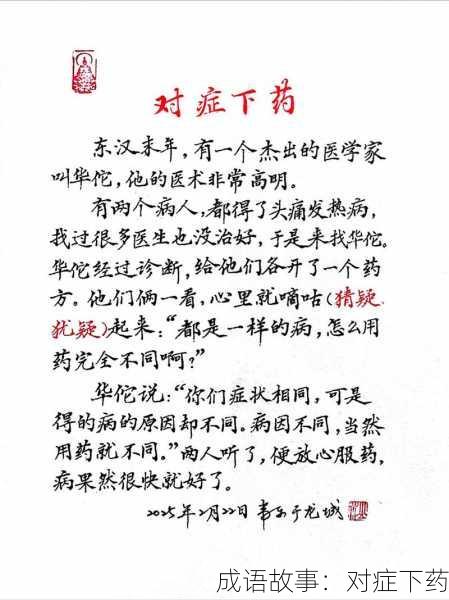 对症下药
东汉末年，有一个杰出的医学家
叫华佗，他的医术非常高明。
有两个病人，都得了头痛发热病，
找过很多医生也没治好，于是来找华佗。
华佗经过诊断，给他们各开了一个药
方。他们俩一看，心里就嘀咕(猜疑.
犹疑)起来：“都是一样的病，怎么用
药完全不同啊？”
华佗说：“你们症状相同，可是
得的病的原因却不同。病因不同，当然
用药就不同。”两人听了，便放心服药，
病果然很快就好了。
2025年2月22日 于龙城
成语故事：对症下药